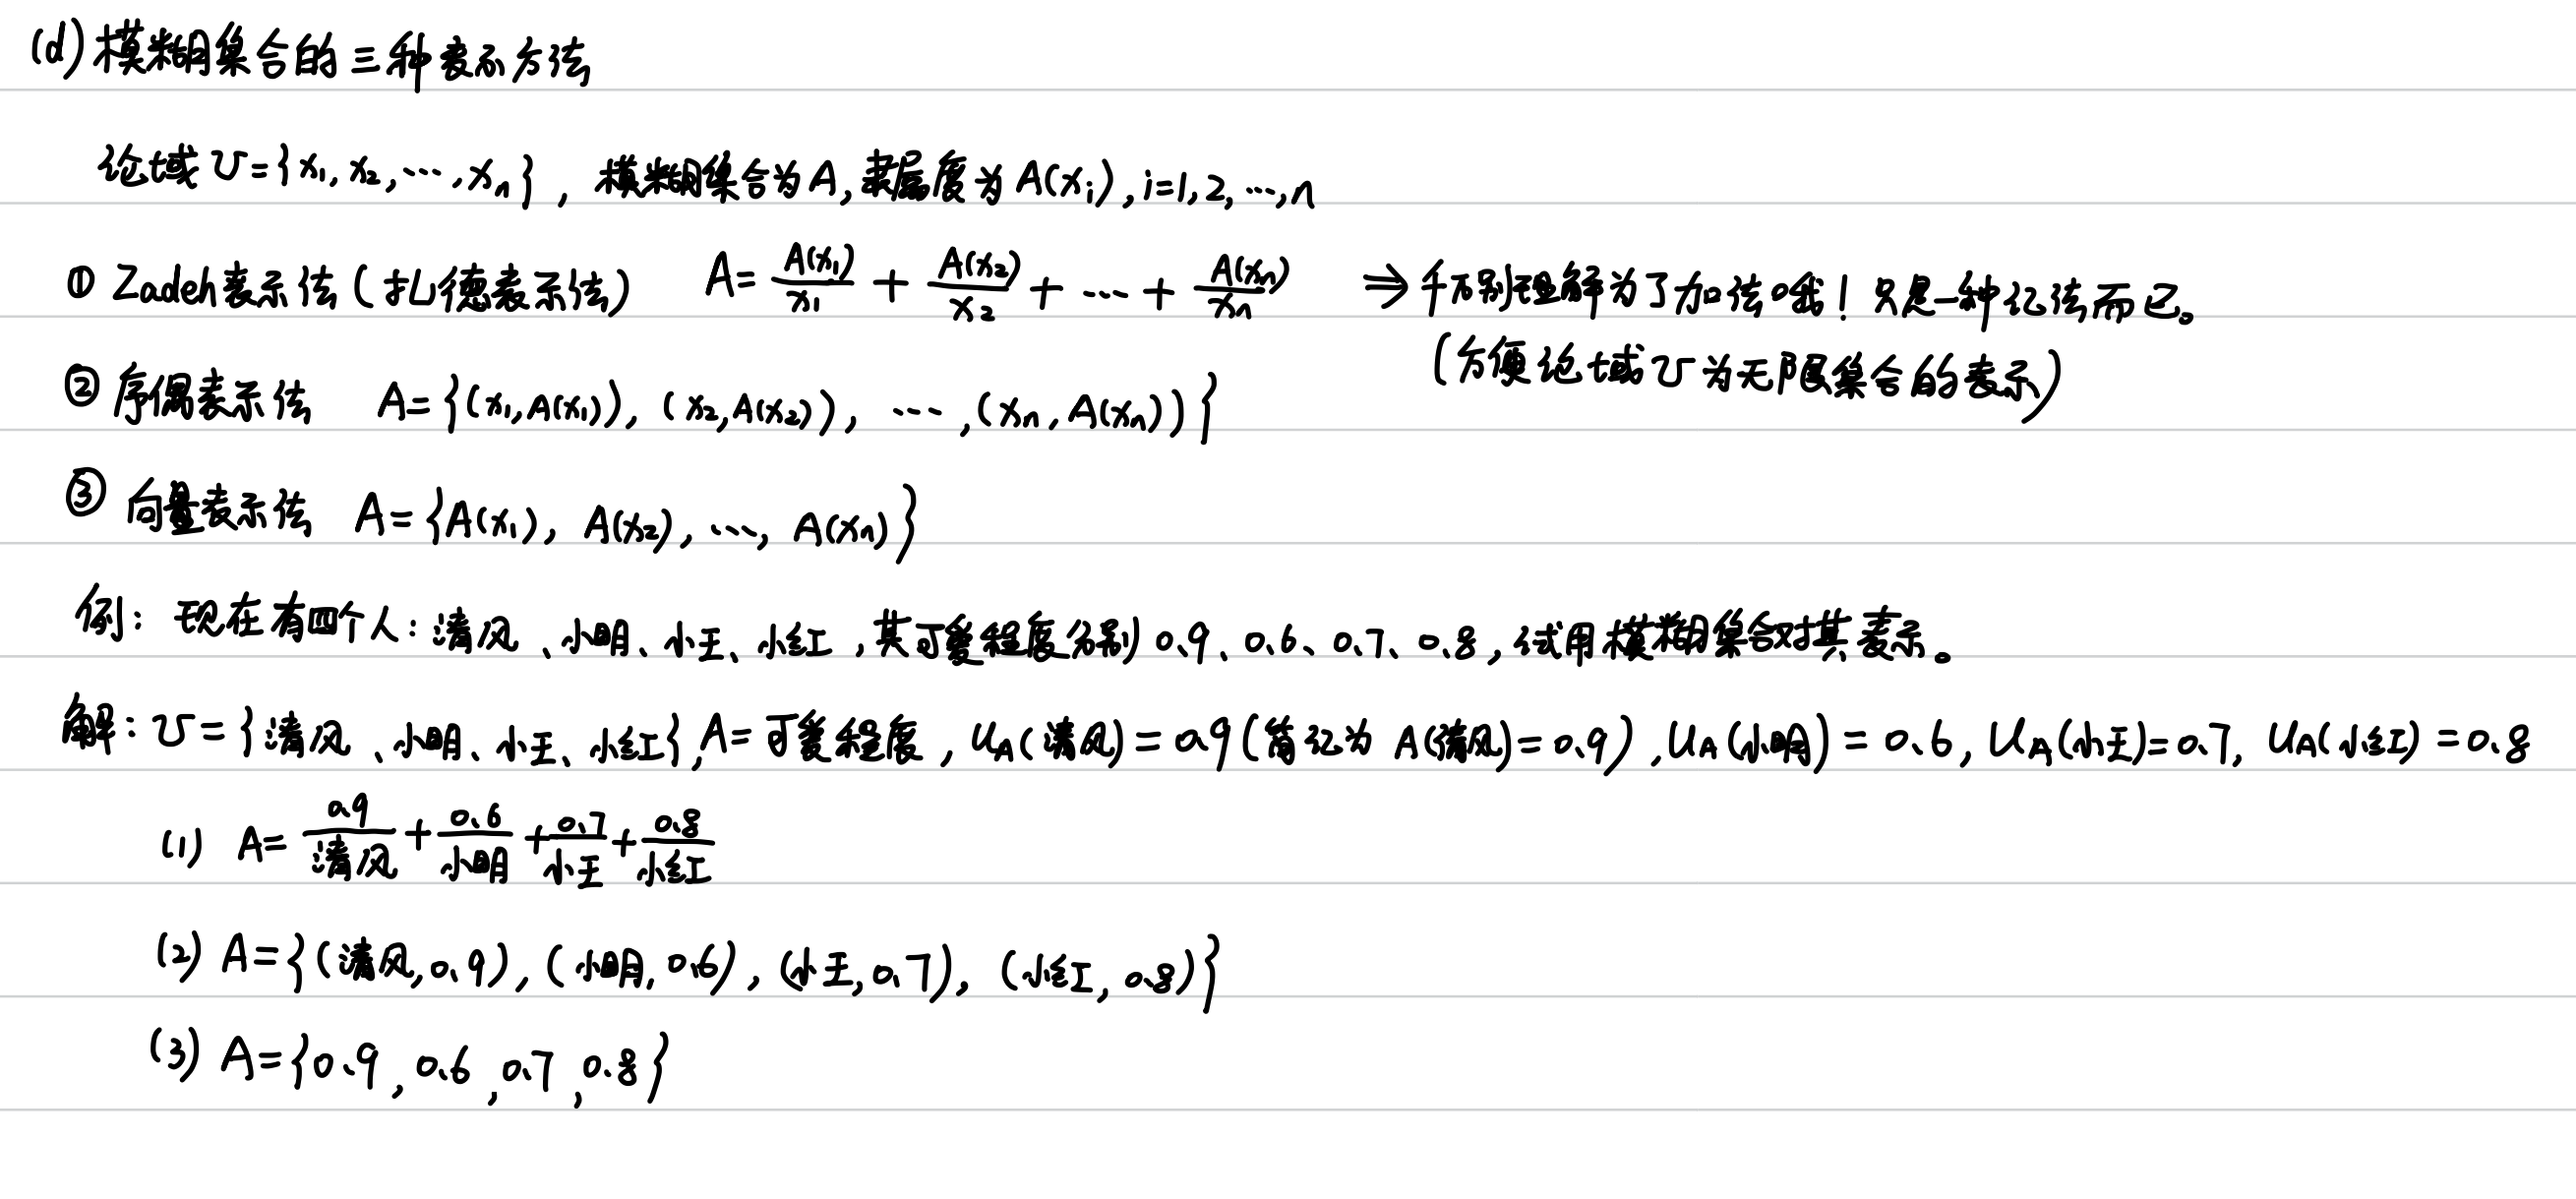 (d) 模糊集合的三种表示方法
论域 U={x₁, x₂, ⋯, xₙ}, 模糊集合为A, 隶属度为 A(xᵢ), i=1, 2, ⋯, n
① Zadeh表示法 (扎德表示法) A= A(x₁)/x₁ + A(x₂)/x₂ + ⋯ + A(xₙ)/xₙ ⇒ 千万别理解为了加法哦! 只是一种记法而已。
(方便论域U为无限集合的表示)
② 序偶表示法 A={(x₁, A(x₁)), (x₂, A(x₂)), ⋯, (xₙ, A(xₙ))}
③ 向量表示法 A={A(x₁), A(x₂), ⋯, A(xₙ)}
例: 现在有四个人: 清风、小明、小王、小红, 其可爱程度分别0.9、0.6、0.7、0.8, 试用模糊集合对其表示。
解: U={清风、小明、小王、小红}, A=可爱程度, U_A(清风)=0.9(简记为 A(清风)=0.9), U_A(小明)=0.6, U_A(小王)=0.7, U_A(小红)=0.8
(1) A= 0.9/清风 + 0.6/小明 + 0.7/小王 + 0.8/小红
(2) A={(清风, 0.9), (小明, 0.6), (小王, 0.7), (小红, 0.8)}
(3) A={0.9, 0.6, 0.7, 0.8}